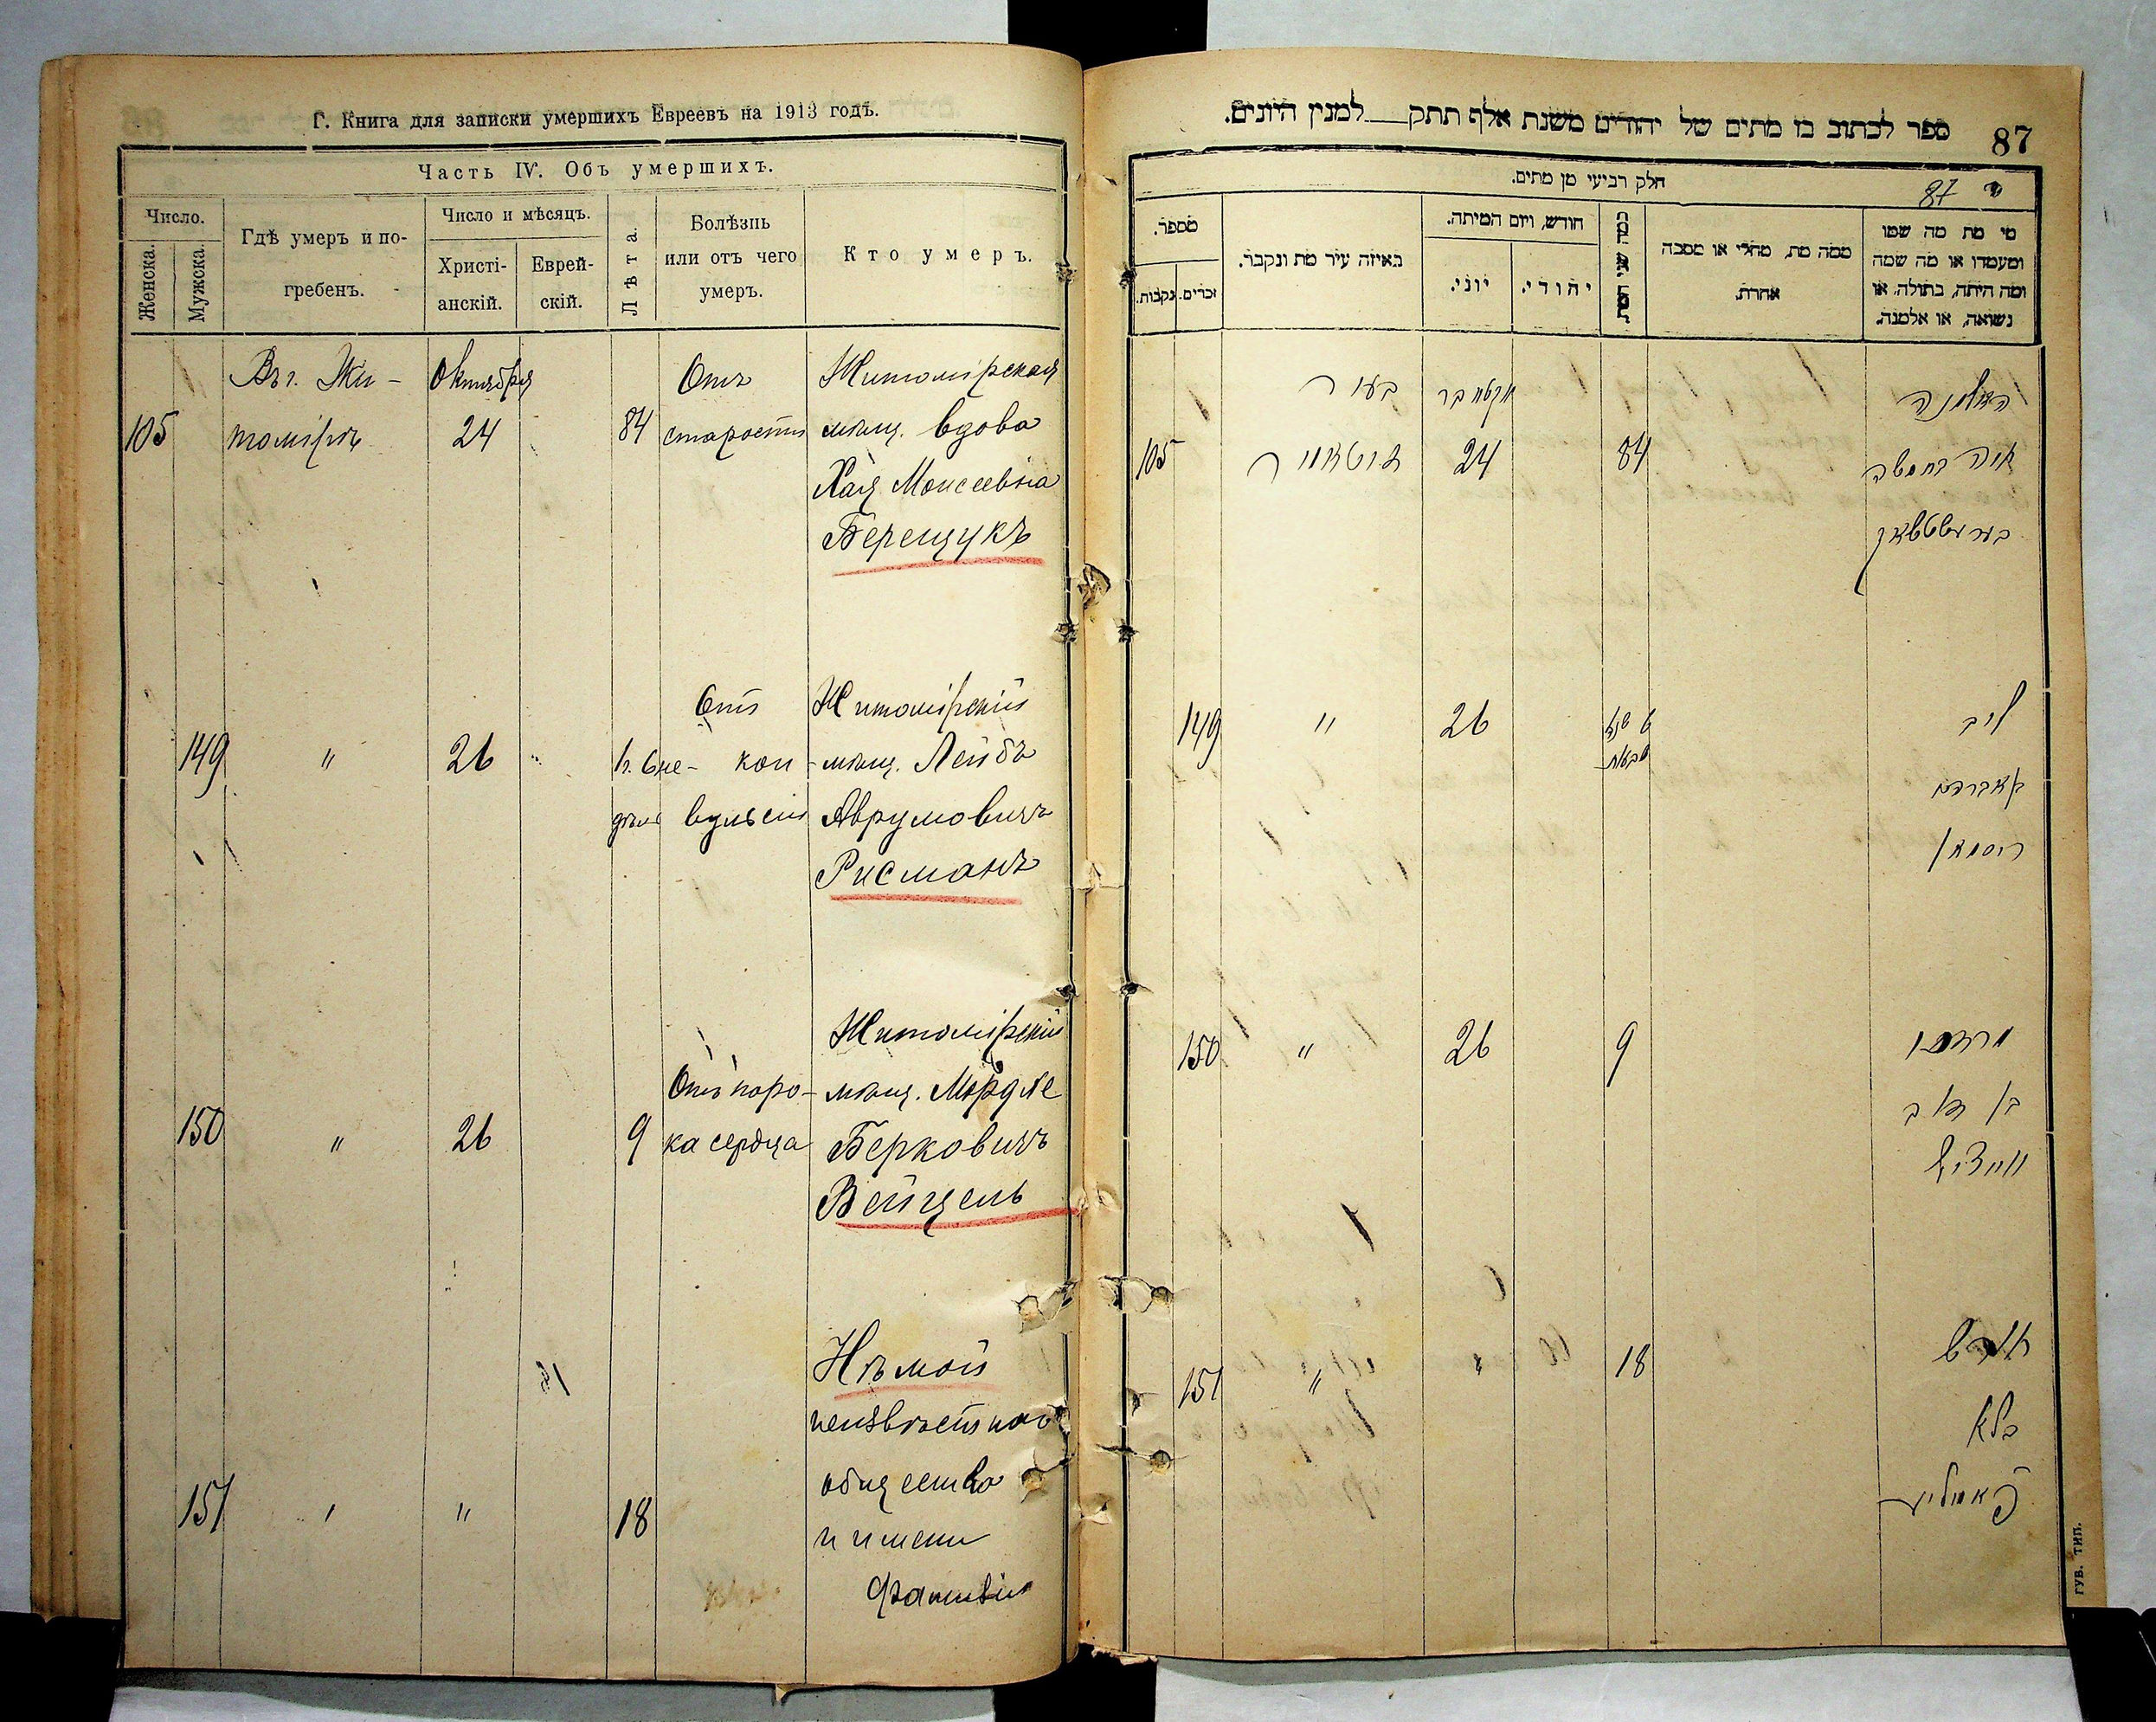 Г. Книга для записки умершихъ Евреевъ на 1913 годъ.
Часть IV. Объ умершихъ.
Число.
Женска.
Мужска.
Гдѣ умеръ и по-
гребенъ.
Число и мѣсяцъ.
Христі-
анскій.
Еврей-
скій.
Лѣта.
Болѣзнь
или отъ чего
умеръ.
Кто умеръ.
Въ г. Жи- Октября Отъ Житомірская
105 томірѣ 24 84 старости мѣщ. вдова
Хая Моисеевна
Берещукъ
Отъ Житомірскій
149 " 26 6 не- кон- мѣщ. Лейбъ
вульсій Аврумовичъ
Рисманъ
Житомірскій
Отъ поро- мѣщ. Мордке
150 " 26 9 ка сердца Берковичъ
Вейцель
Нѣмой
неизвѣстнаго
общества
151 " " 18
и имени
фамиліи
ספר לכתוב בו מתים של יהודים משנת אלף תתק למנין היונים.
87
חלק רביעי מן מתים.
87
מספר.
נקבות.
זכרים.
באיזה עיר מת ונקבר.
חודש, ויום המיתה.
יוני.
יהודי.
כמה שני המת
ממה מת, מחלי או מסבה
אחרת.
מי מת מה שמו
ומעמדו או מה שמה
ומה היתה, בתולה, או
נשואה, או אלמנה.
בעיר אקטאבר האלמנה
105 זיטאמיר 24 84
149 " 26 ליב
בן אברהם
ריסמאן
150 " 26 9 מרדכי
בן
ווייצעל
151 " " 18
בלא
פאמיליע
ГУВ. ТИП.